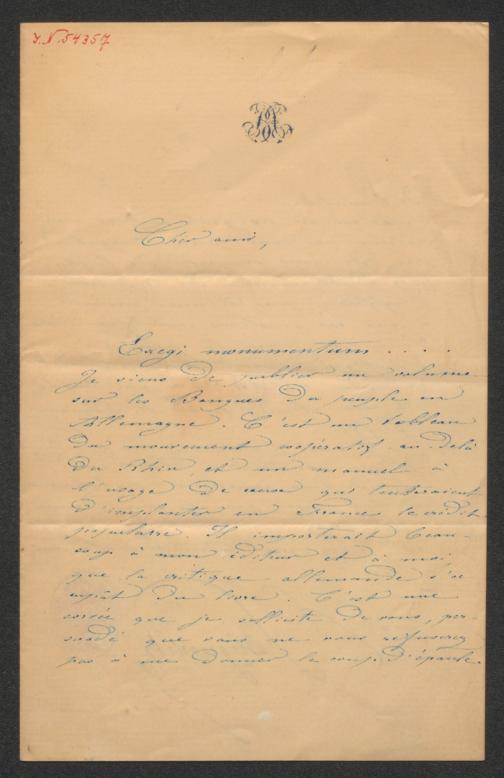 I.N. 54357
Cher ami,
Exegi monumentum . . . .
Je viens de publier un volume
sur les Banques du peuple en
Allemagne. C'est un tableau
du mouvement coopératif au-delà
du Rhin et un manuel à
l'usage de ceux qui tenteraient
d'implanter en France le crédit
populaire. Il importerait beau-
coup à mon éditeur et à moi
que la critique allemande s'oc-
cupât du livre. C'est une
corvée que je sollicite de vous, per-
suadé que vous ne vous refuserez
pas à me donner le coup d'épaule